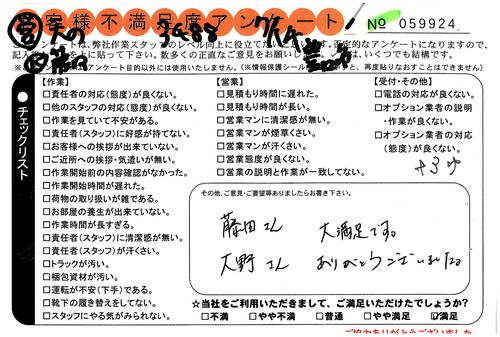 お客様不満足度アンケート! № 059924
アンケートは、弊社作業スタッフのレベル向上に役立てたい
否定的なアンケートになりますので、
数多くの正直なご意見をお願いし
いくつでも結構です。
アンケート目的以外には使用いたしません。(※情報保護シール
再度貼りなおすことはできません)
チェックリスト
【作業】
□責任者の対応(態度)が良くない。
□他のスタッフの対応(態度)が良くない。
□作業を見ていて不安がある。
□責任者(スタッフ)に好感が持てない。
□お客様への挨拶が出来ていない。
□ご近所への挨拶・気遣いが無い。
□作業開始前の内容確認がなかった。
□作業開始時間が遅れた。
□荷物の取り扱いが雑である。
□お部屋の養生が出来ていない。
□作業時間が長すぎる。
□責任者(スタッフ)に清潔感が無い。
□責任者(スタッフ)が汗くさい。
□トラックが汚い。
□梱包資材が汚い。
□運転が不安(下手)である。
□靴下の履き替えをしてない。
□スタッフにやる気がみられない。
【営業】
□見積もり時間に遅れた。
□見積もり時間が長い。
□営業マンに清潔感が無い。
□営業マンが煙草くさい。
□営業マンが汗くさい。
□営業態度が良くない。
□営業の説明と作業が一致してない。
【受付・その他】
□電話の対応が良くない。
□オプション業者の説明
・作業が良くない。
□オプション業者の対応
(態度)が良くない。
その他、ご意見・ご要望等ありましたらお書き下さい。
藤田さん 大満足です。
大野さん ありがとうございました。
☆当社をご利用いただきまして、ご満足いただけたでしょうか?
□不満 □やや不満 □普通 □やや満足 ☑満足
ご協力ありがとうございました